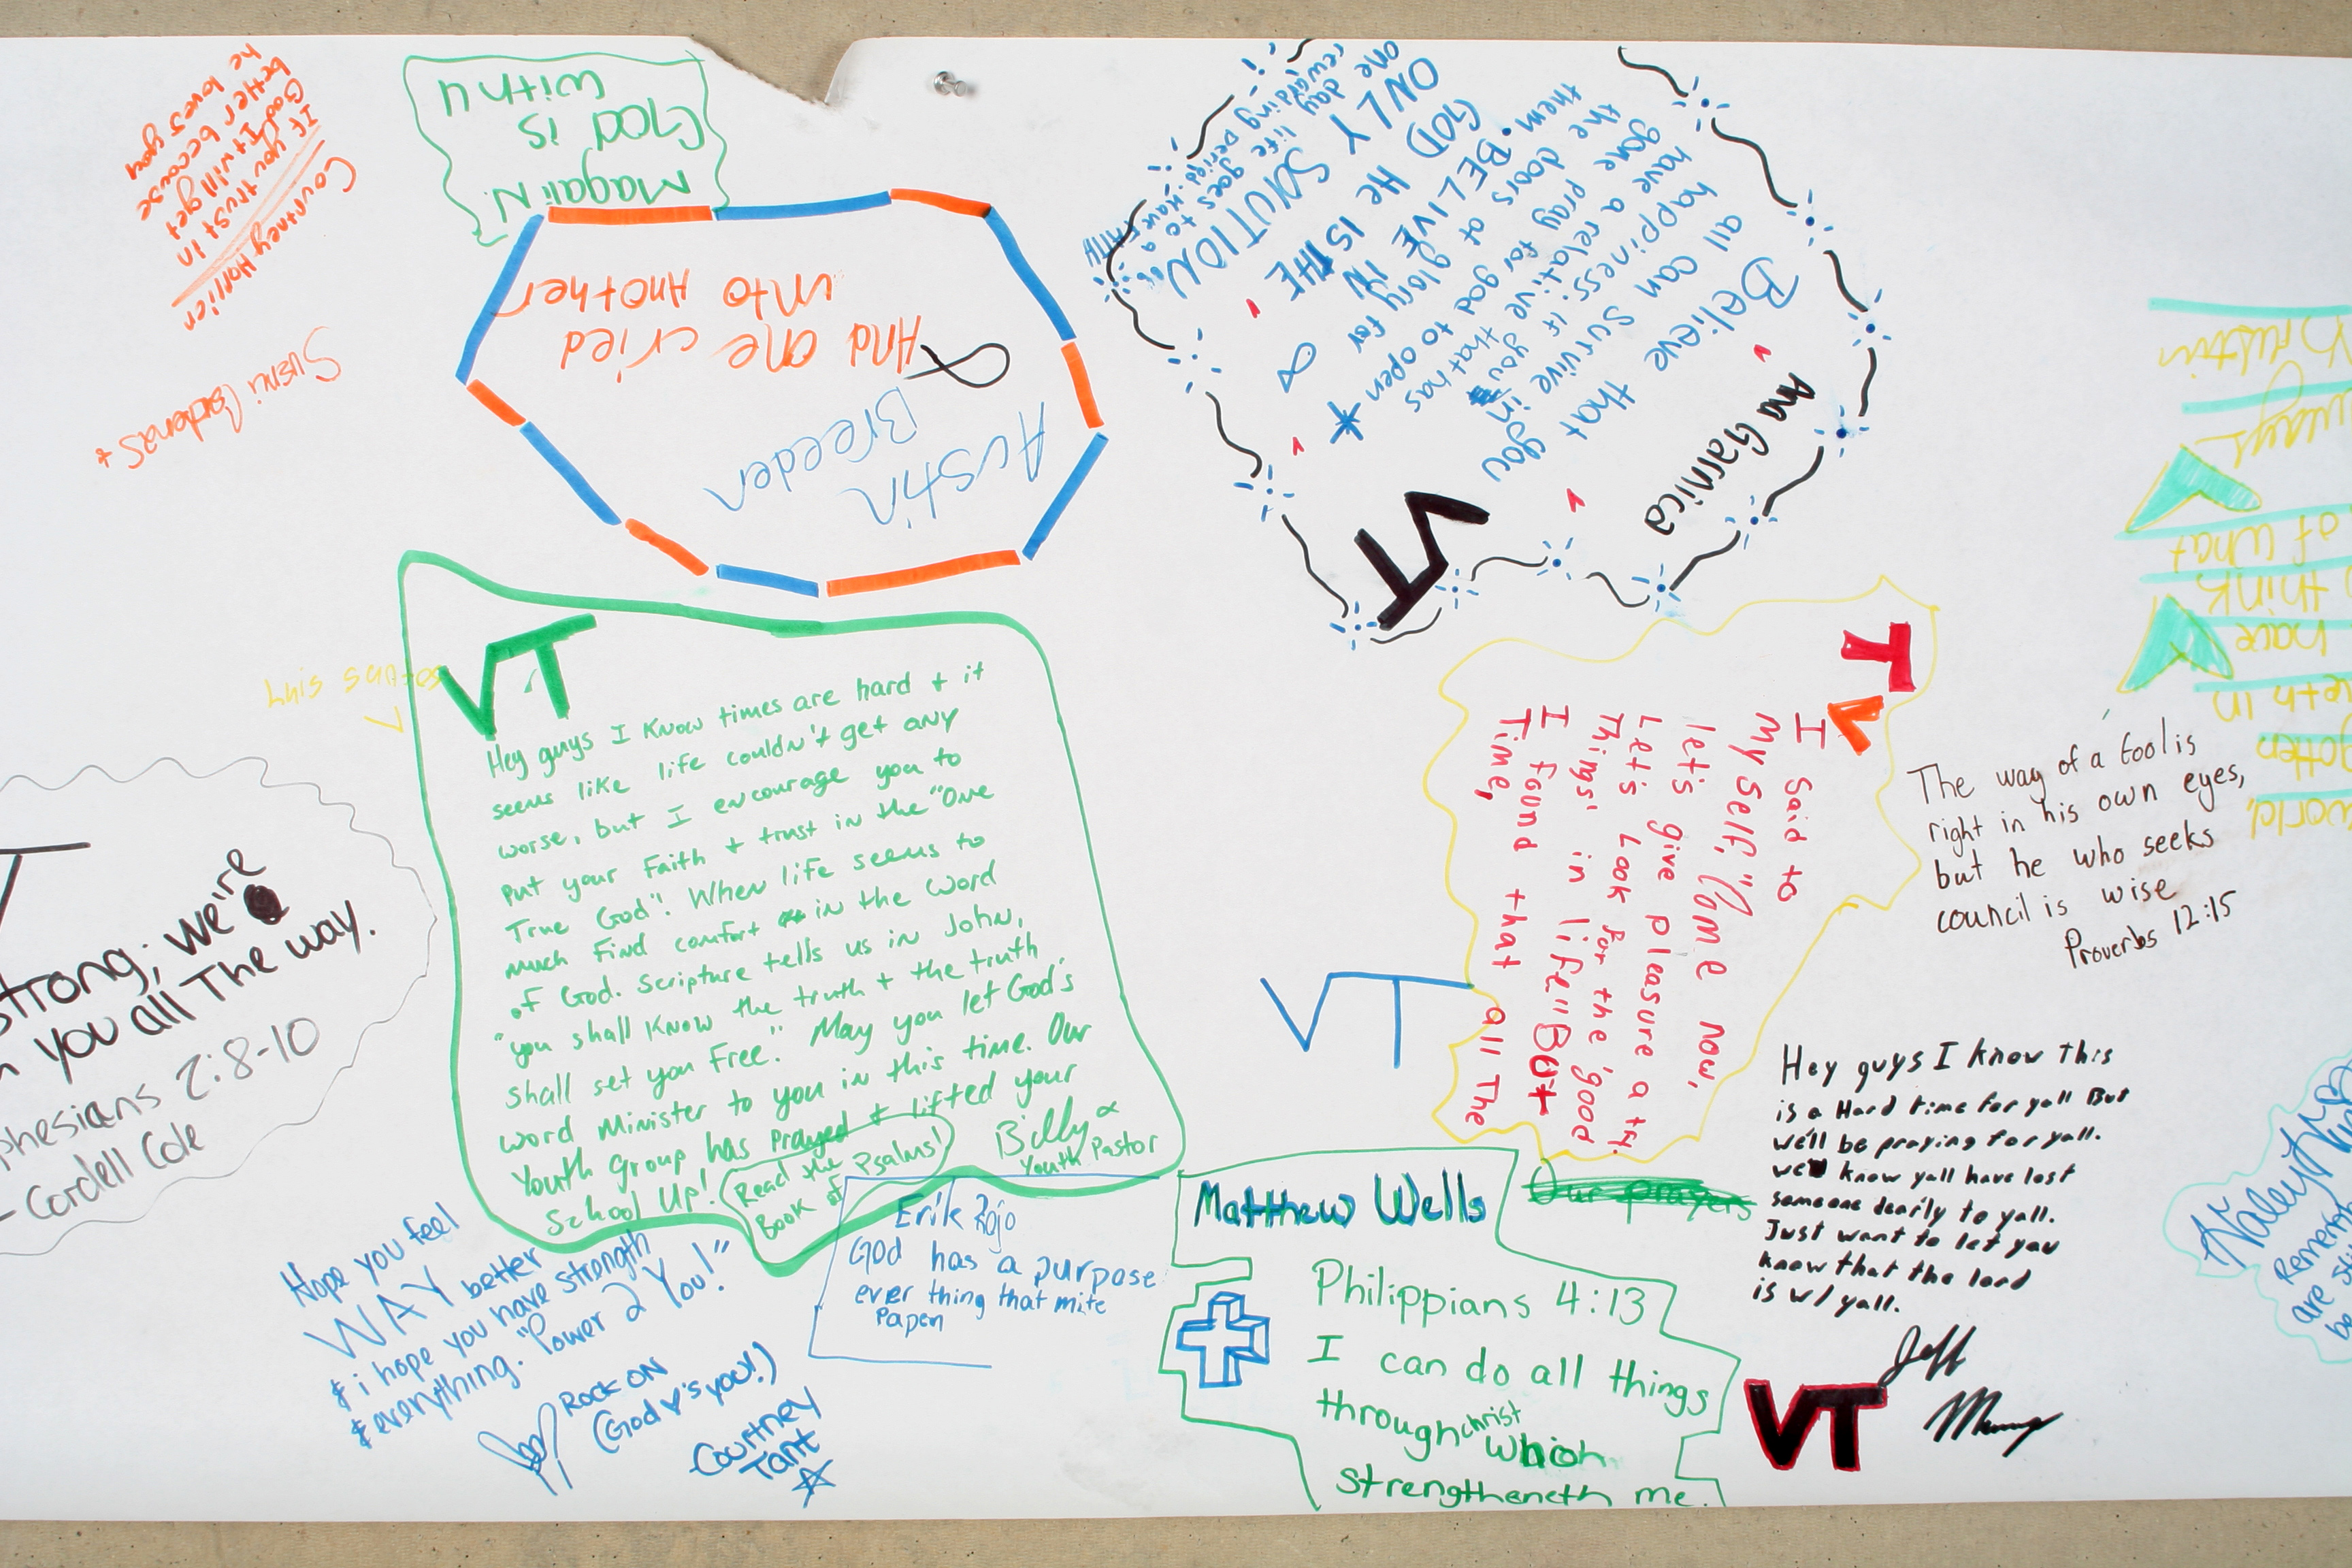 Courtney Harlier
If you trust in
God It will get
better because
he loves you
Susni Cardenas
Magali N.
God is
with u
Austin
Breeden
And one cried
unto Another
Ana Garnica
Believe that
all can survive in you
happiness. if you in god
have a relative that has
gone pray for god to open
the doors at glory for
them. BELIVE IN
GOD He IS THE
ONLY SONUTION
one day life goes to a
rewarding Period. Have FAITH
VT
VT
Hey guys I know times are hard + it
seems like life couldn't get any
worse, but I encourage you to
put your Faith + trust in the "One
True God"! When life seems to
much Find comfort in the word
of God. Scripture tells us in John,
"you shall know the truth + the truth
shall set you Free." May you let God's
word Minister to you in this time. Our
Youth Group has prayed & lifted your
School Up!
Read the
Book of Psalms!
Billy
Youth Pastor
strong; we're
you all The way.
Ephesians 2:8-10
- Cordell Cole
Hope you feel
WAY better
& i hope you have strength
& everything. "Power 2 You!"
ROCK ON
(God ♥'s you!)
Courtney
Tant
Erik Rojo
God has a purpose
ever thing that mite
Papen
VT
VT
I Said to
My Self, "Come now,
let's give pleasure a try.
Let's Look for the 'good
Things' in life" But
I Found that all The
Time,
Matthew Wells
Our prayers
Philippians 4:13
I can do all things
through christ
which
strengtheneth me.
The way of a fool is
right in his own eyes,
but he who seeks
council is wise
Proverbs 12:15
Hey guys I know this
is a Hard time for yall But
we'll be praying for yall.
we know yall have lost
someone dearly to yall.
Just want to let you
know that the lord
is w/ yall.
Jeff
VT
world,
in
have
think
of what